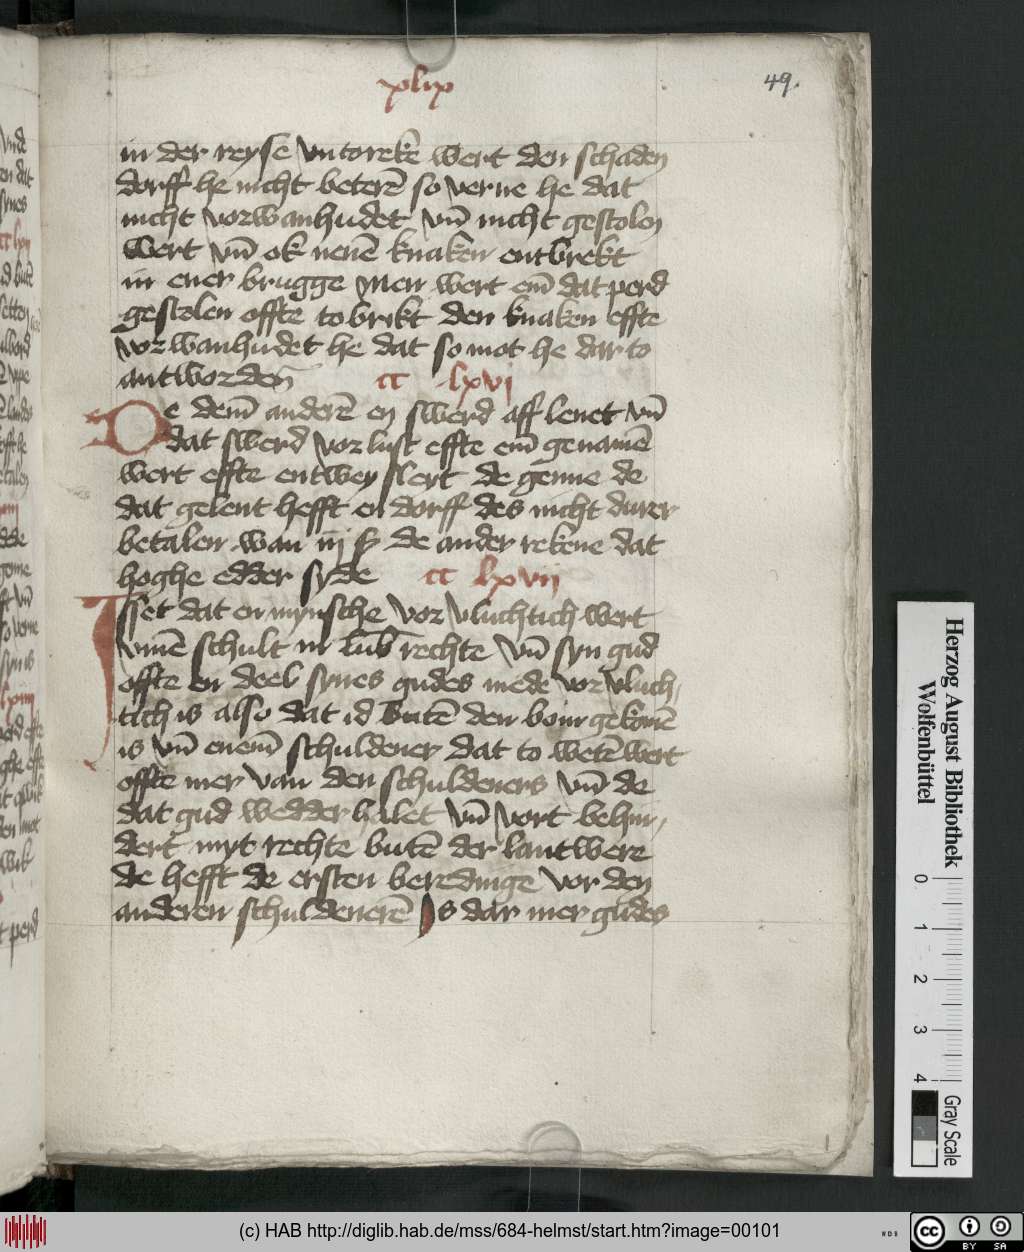 xlix
49.
in der reyse vntorekē wert den schaden
dorff he nicht beterē so verne he dat
nicht vorwanhudet vn̄ nicht gestolen
wert vn̄ ok nenē knaken entbrekt
in ener brugge Men wert em̄ dat perd
gestolen offte tobrikt den knaken effte
vorwanhudet he dat so mot he dar to
antworden cc lxvi
De dem̄ anderē en swerd aff lenet vn̄
dat swerd vorlust effte em̄ genamē
wert effte entwey sleyt de genne de
dat gelent hefft en dorff des nicht durer
betalen wan iij ß de ander rekene dat
hoghe edder syde cc lxvii
Isset dat en mynsche vor vluchtich wert
vmē schult in lub rechte vn̄ syn gud
offte en deel synes gudes mede vor vluch,
tich is also dat id butē den bom gekomē
is vn̄ enem̄ schuldener dat to wetē wert
offte mer van den schuldeners vn̄ de
dat gud wedder halet vn̄ vort behin,
dert myt rechte butē der lantwere
de hefft de ersten beredinge vor den
anderen schuldenerē Is dar mer gudes
Herzog August Bibliothek
Wolfenbüttel
0 1 2 3 4
Gray Scale
(c) HAB http://diglib.hab.de/mss/684-helmst/start.htm?image=00101
WDB
cc BY SA